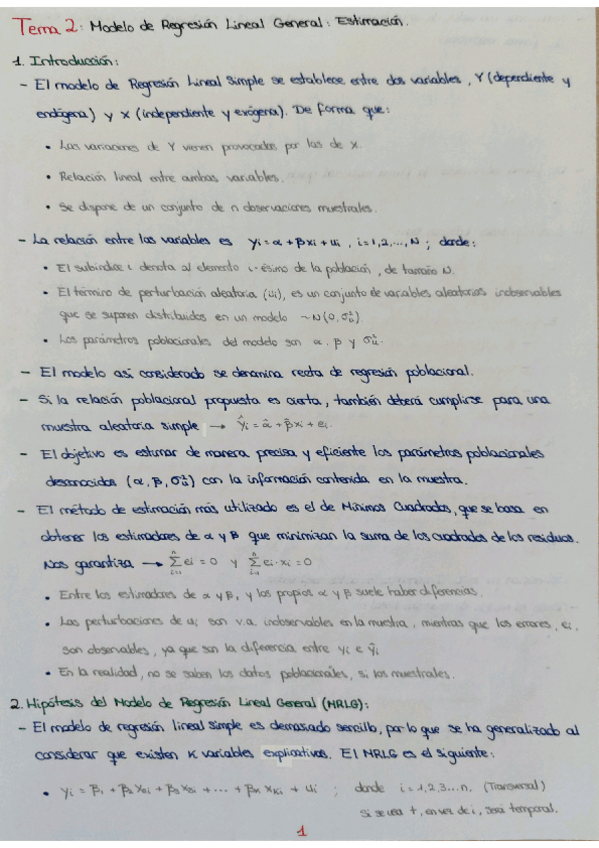 Tema 2: Modelo de Regresión Lineal General: Estimación.
1. Introducción:
- El modelo de Regresión Lineal Simple se establece entre dos variables, Y (dependiente y
endógena) y X (independiente y exógena). De forma que:
• Las variaciones de Y vienen provocadas por las de X.
• Relación lineal entre ambas variables.
• Se dispone de un conjunto de n observaciones muestrales.
- La relación entre las variables es yi = α + βxi + ui , i = 1,2,..., N ; donde:
• El subíndice i denota al elemento i-ésimo de la población, de tamaño N.
• El término de perturbación aleatoria (ui), es un conjunto de variables aleatorias inobservables
que se suponen distribuidos en un modelo ~N(0, σ²u)
• Los parámetros poblacionales del modelo son α, β y σ²u.
- El modelo así considerado se denomina recta de regresión poblacional.
- Si la relación poblacional propuesta es cierta, también deberá cumplirse para una
muestra aleatoria simple → ŷi = α̂ + β̂xi + ei.
- El objetivo es estimar de manera precisa y eficiente los parámetros poblacionales
desconocidos (α, β, σ²u) con la información contenida en la muestra.
- El método de estimación más utilizado es el de Mínimos Cuadrados, que se basa en
obtener los estimadores de α y β que minimizan la suma de los cuadrados de los residuos.
Nos garantiza → Σ ei = 0 y Σ ei · xi = 0
• Entre los estimadores de α y β, y los propios α y β suele haber diferencias.
• Las perturbaciones de ui son v.a. inobservables en la muestra, mientras que los errores, ei,
son observables, ya que son la diferencia entre yi e ŷi
• En la realidad, no se saben los datos poblacionales, si los muestrales.
2. Hipótesis del Modelo de Regresión Lineal General (MRLG):
- El modelo de regresión lineal simple es demasiado sencillo, por lo que se ha generalizado al
considerar que existen K variables explicativas. El MRLG es el siguiente:
• yi = β1 + β2 X2i + β3 X3i + ... + βK XKi + ui ; donde i = 1,2,3...n. (Transversal)
Si se usa t, en vez de i, será temporal.
1